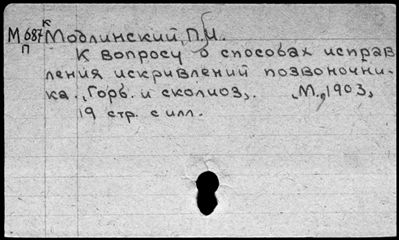 М687 к Модлинский, П.И.
п К вопросу о способах исправ
ления искривлений позвоночни-
ка. „Горб. и сколиоз„. „М.„ 1903,
19 стр. с илл.